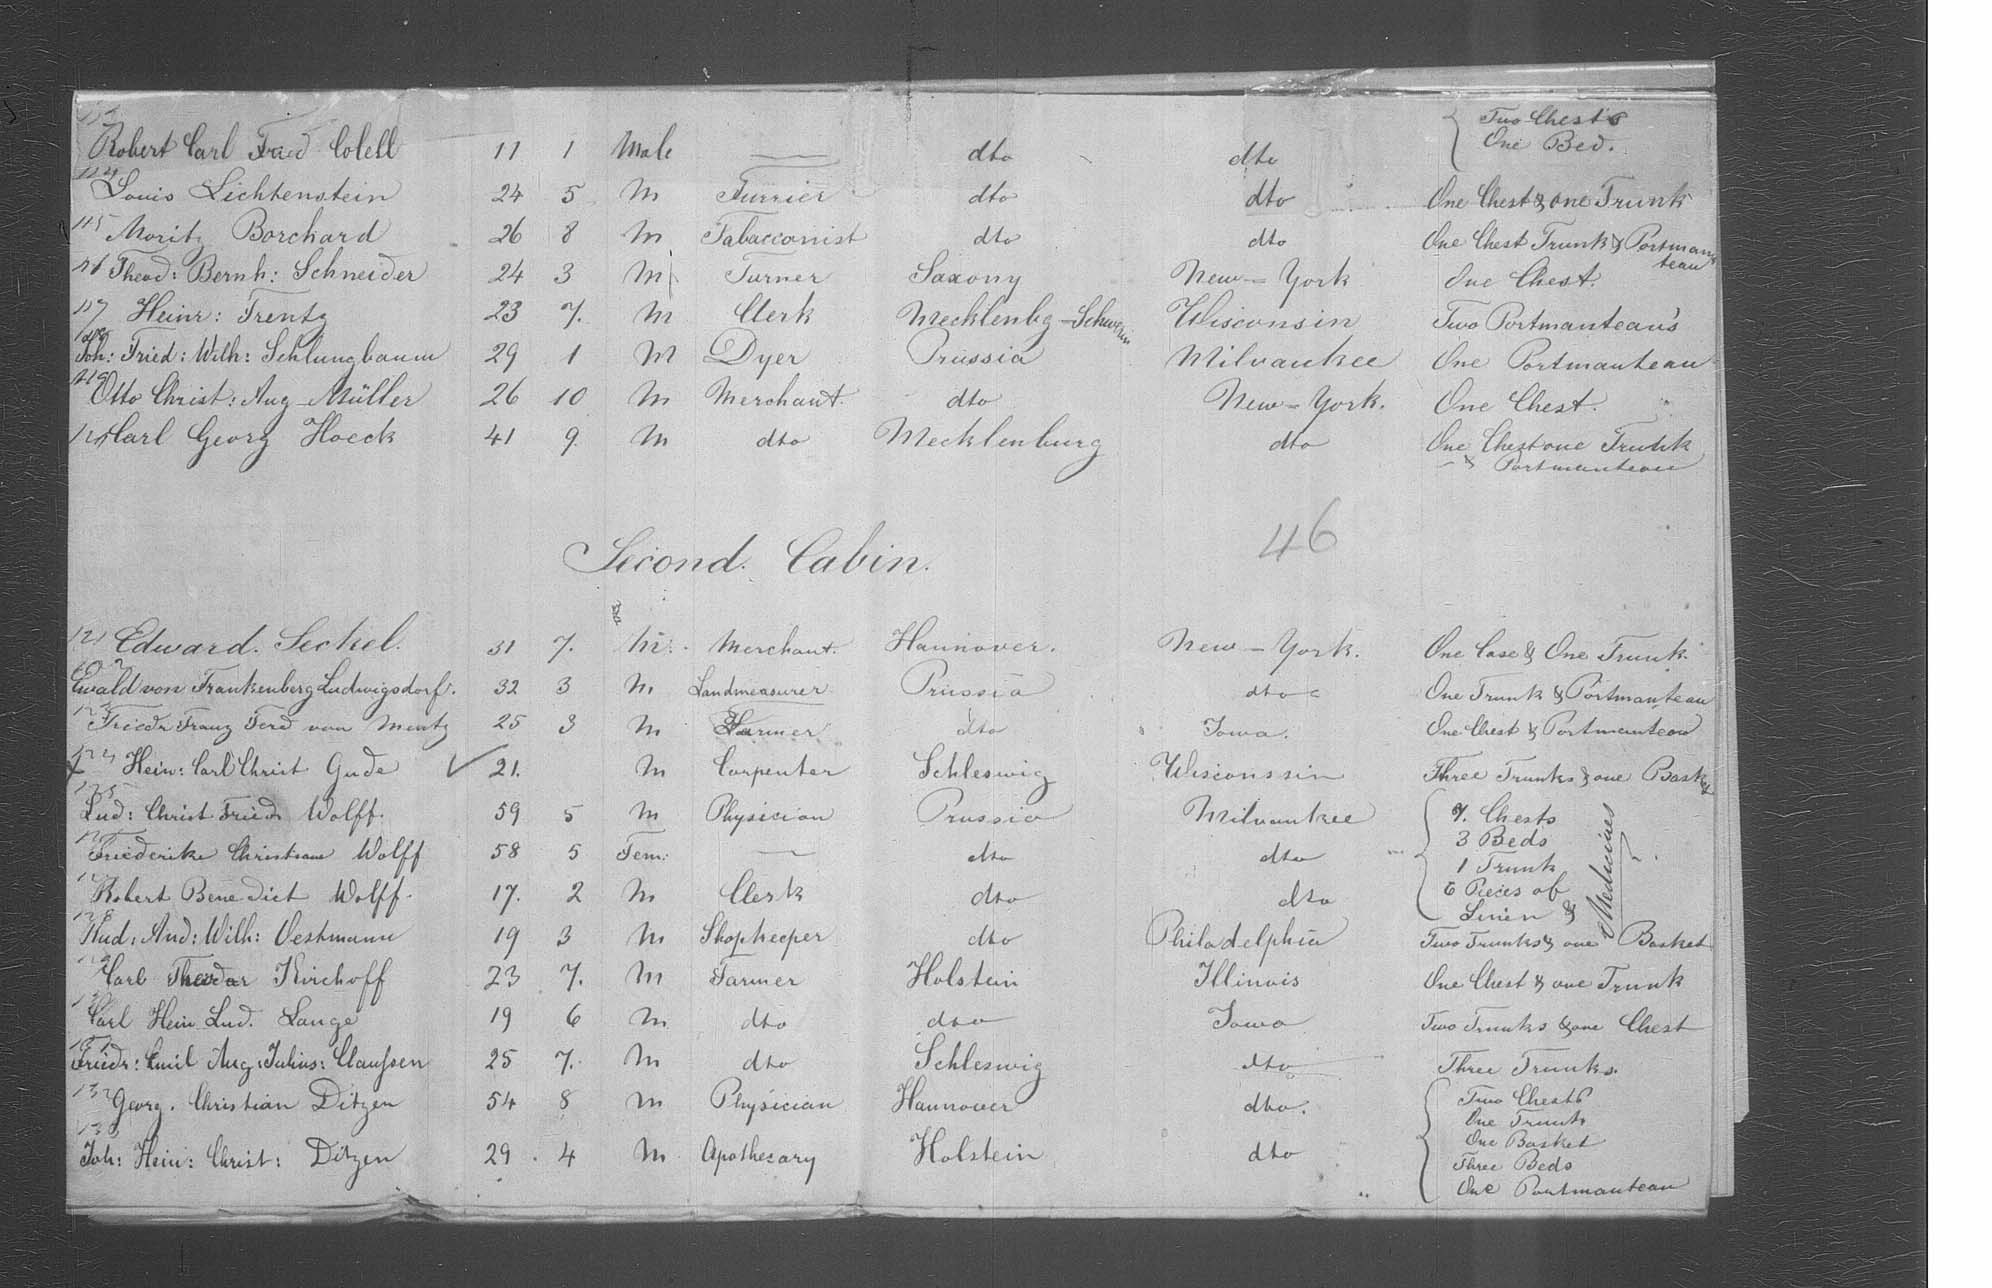 Two Chests
113 Robert Carl Fried Colell 11 1 Male — dto dto One Bed.
114 Louis Lichtenstein 24 5 M Furrier dto dto One Chest & one Trunk
115 Moritz Borchard 26 8 M Tabacconist dto dto One Chest Trunk & Portman
teau
116 Theod: Bernh: Schneider 24 3 M Turner Saxony New-York One Chest.
117 Heinr: Frentz 23 7. M Clerk Mecklenbg-Schwerin Wisconsin Two Portmanteau's
118 Joh: Fried: Wilh: Schlungbaum 29 1 M Dyer Prussia Milvaukee One Portmanteau
119 Otto Christ: Aug Müller 26 10 M Merchant dto New-York. One Chest.
120 Carl Georg Hoeck 41 9. M dto Mecklenburg dto One Chest one Trunk
& Portmanteau
46
Second. Cabin.
121 Edward. Seckel. 31 7. M. Merchant. Hannover. New-York. One Case & One Trunk.
122 Ewald von Frankenberg Ludwigsdorf. 32 3 M Landmeasurer Prussia dto One Trunk & Portmanteau
123 Friedr Franz Ferd von Mentz 25 3 M Farmer dto Iowa. One Chest & Portmanteau
124 Hein: Carl Christ Gude 21. M Carpenter Schleswig Wisconssin Three Trunks & one Basket
125 Lud: Christ Fried Wolff. 59 5 M Physician Prussia Milvaukee 7. Chests
3 Beds
126 Friederike Christiane Wolff 58 5 Fem: — dto dto 1 Trunk
127 Robert Benedict Wolff. 17. 2 M Clerk dto dto 6 Pieces of
Linen & Medicines
128 And: Wilh: Oestmann 19 3 M Shopkeeper dto Philadelphia Two Trunks & one Basket
129 Carl Theodor Kirchoff 23 7. M Farmer Holstein Illinois One Chest & one Trunk
130 Carl Hein Lud. Lange 19 6 M dto dto Iowa Two Trunks & one Chest
131 Friedr: Emil Aug: Julius: Claussen 25 7. M dto Schleswig dto Three Trunks.
132 Georg. Christian Ditzen 54 8 M Physician Hannover dto. Two Chests
One Trunk
One Basket
133 Joh: Hein: Christ: Ditzen 29 4 M Apothecary Holstein dto Three Beds
One Portmanteau